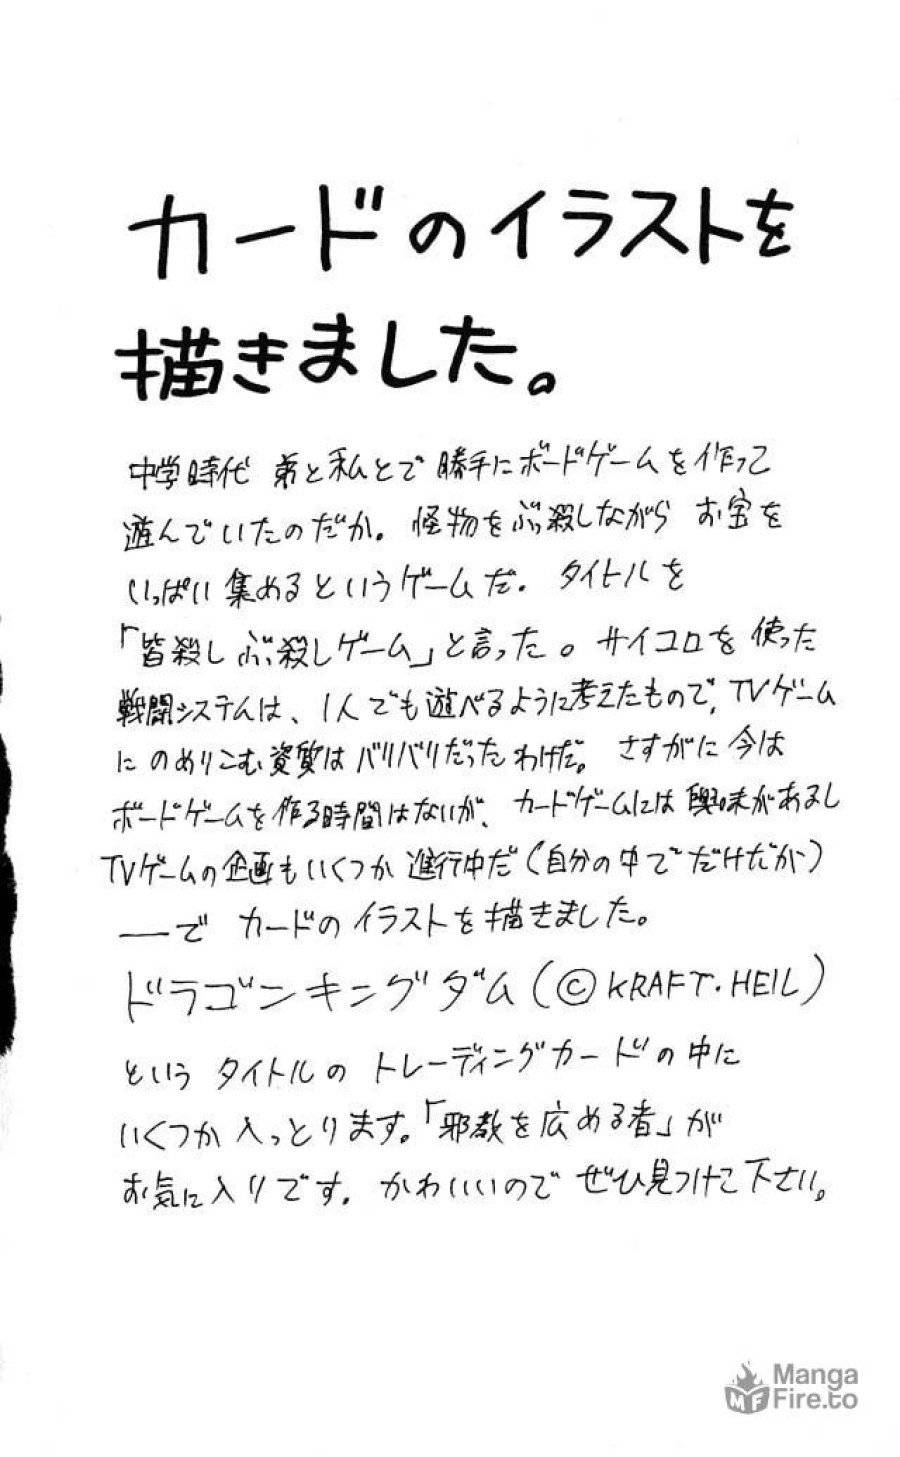 カードのイラストを
描きました。
中学時代 弟と私とで 勝手にボードゲームを作って
遊んでいたのだか。怪物をぶっ殺しながら お宝を
いっぱい集めるというゲームだ。タイトルを
「皆殺し ぶっ殺しゲーム」と言った。サイコロを使った
戦闘システムは、1人でも遊べるように考えたもので、TVゲーム
にのめりこむ資質はバリバリだったわけだ。さすがに今は
ボードゲームを作る時間はないが、カードゲームには興味があるし
TVゲームの企画もいくつか進行中だ(自分の中でだけだが)
──で カードのイラストを描きました。
ドラゴンキングダム(©KRAFT・HEIL)
という タイトルの トレーディングカードの中に
いくつか入っとります。「邪教を広める者」が
お気に入りです。かわいいので ぜひ見つけて下さい。
Manga
Fire.to
MF